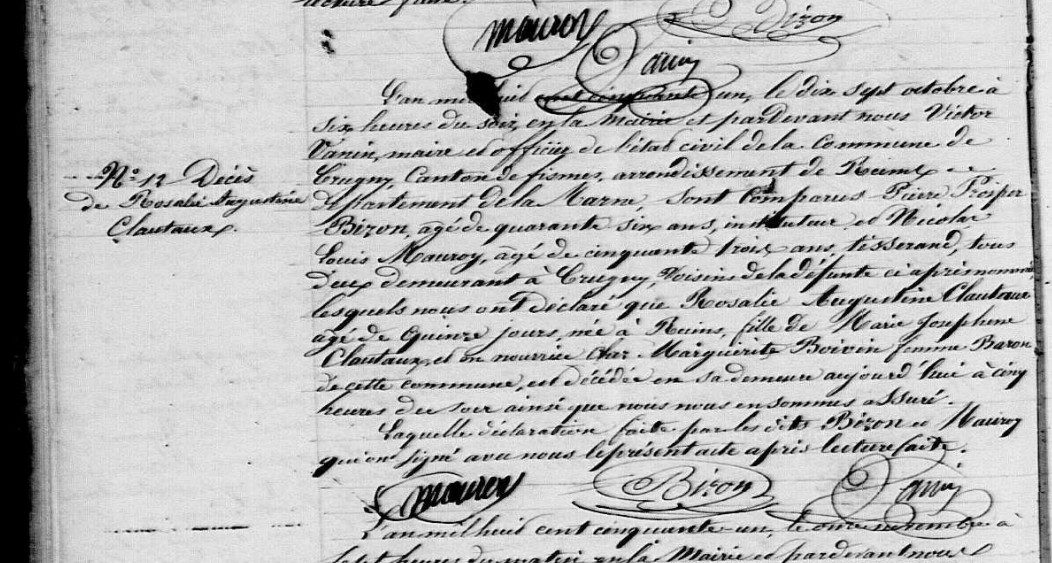 lecture faite.
Mauroy Bizon
Vanin
L'an mil huit cent cinquante un, le dix sept octobre à
six heures du soir, en la Mairie et pardevant nous Victor
Vanin, maire et officier de l'état civil de la Commune de
Crugny, Canton de fismes, arrondissement de Reims
département de la Marne, sont Comparus Pierre Prosper
Bizon, agé de quarante six ans, instituteur et Nicolas
Louis Mauroy, agé de cinquante trois ans, tisserand, tous
deux demeurant à Crugny, Voisins de la défunte ci après nommée
lesquels nous ont déclaré que Rosalie Augustine Clautaux
agé de Quinze jours, née à Reims, fille de Marie Josephine
Clautaux, et en nourrice chez Marguerite Boivin femme Baron
de cette commune, est décédée en sa demeure aujourd'hui à cinq
heures du soir ainsi que nous nous en sommes assuré.
Laquelle déclaration faite par les dits Bizon et Mauroy
qui ont signé avec nous le présent acte après lecture faite.
Mauroy Bizon Vanin
L'an mil huit cent cinquante un, le onze novembre à
sept heures du matin, en la Mairie et pardevant nous
N.º 12 Décès
de Rosalie Augustine
Clautaux.